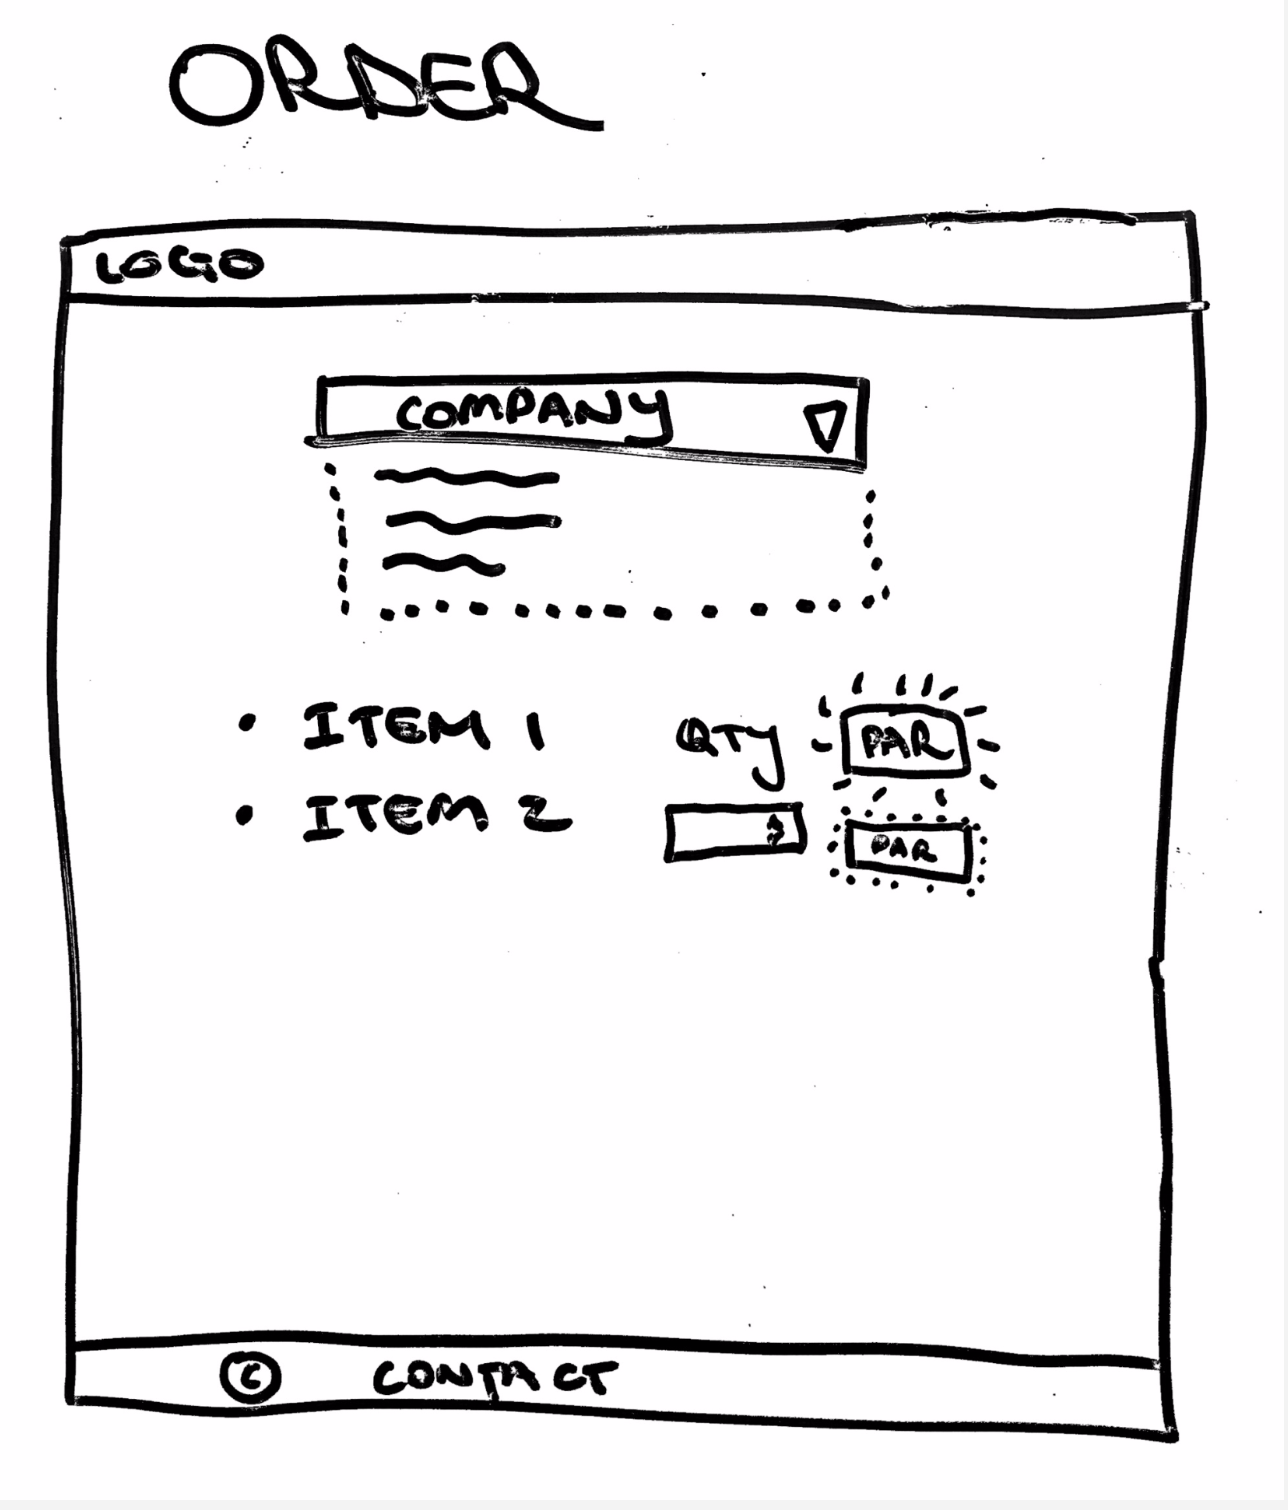 ORDER
LOGO
COMPANY
• ITEM 1 QTY PAR
• ITEM 2 PAR
© CONTACT